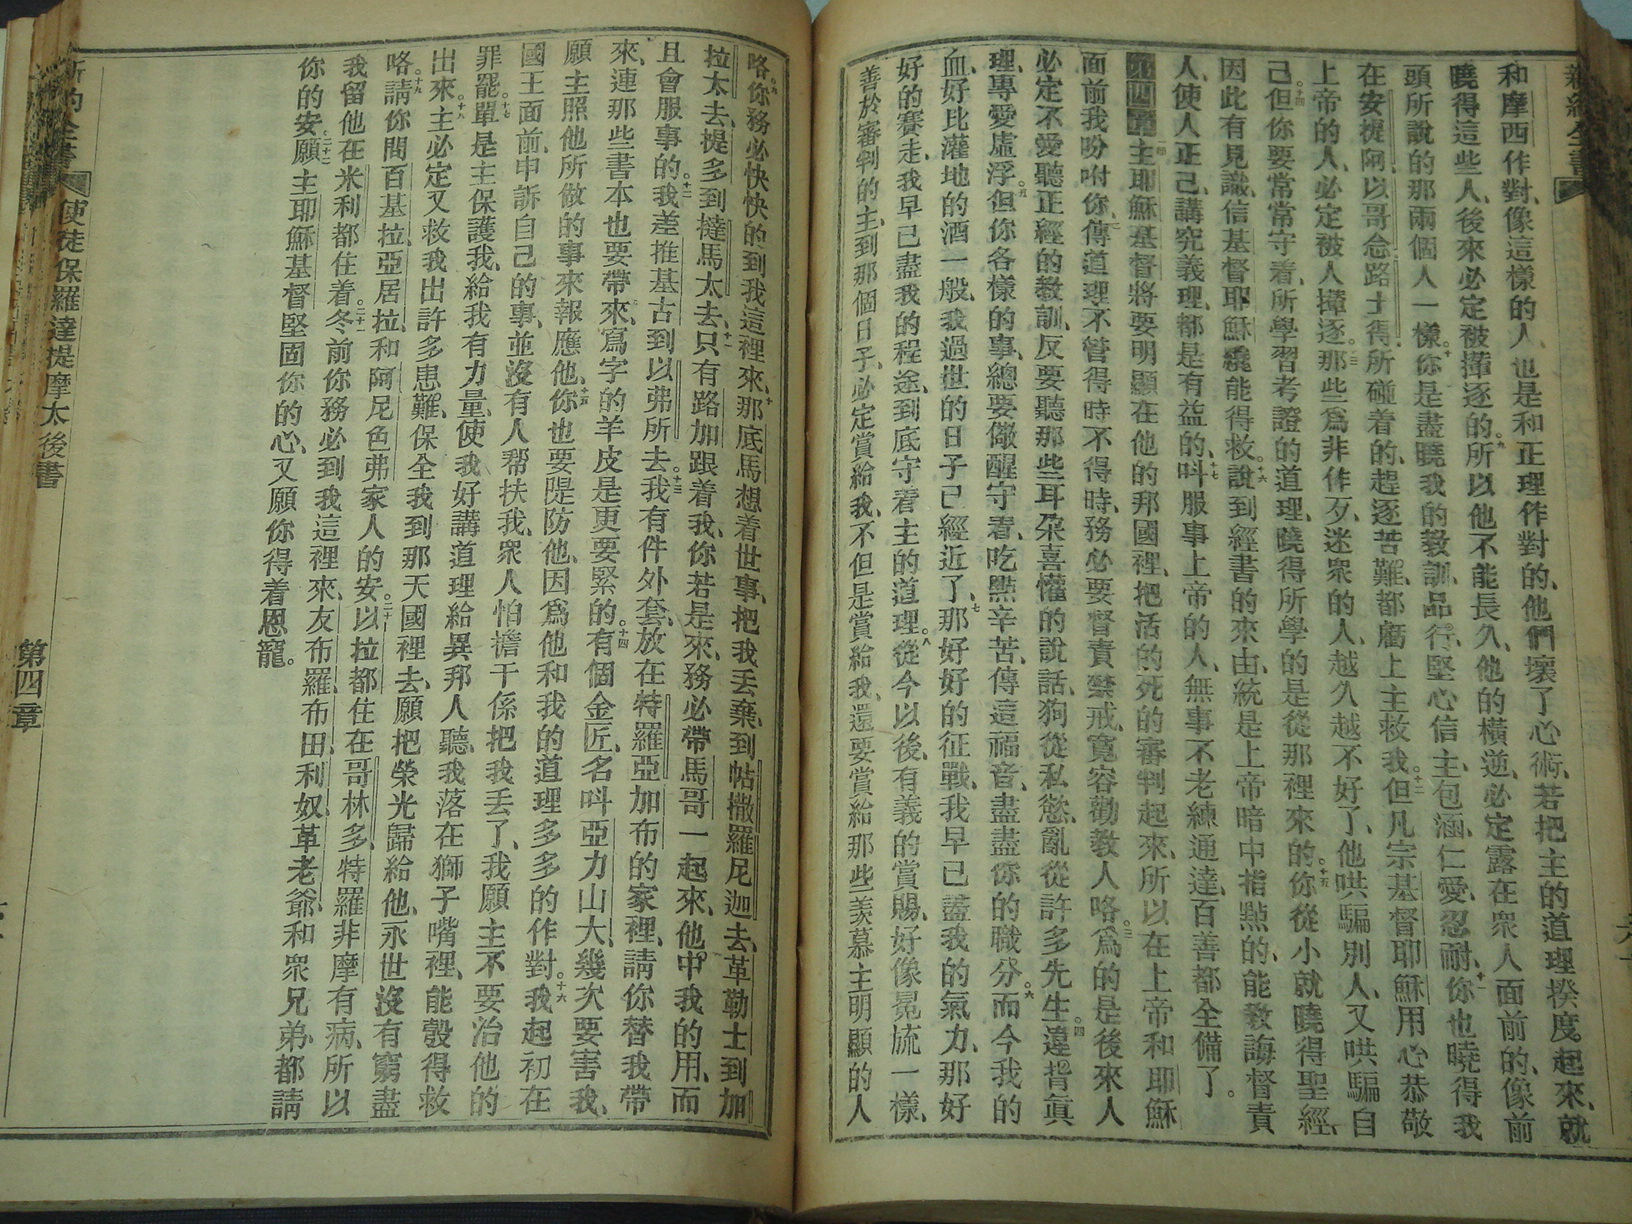 新約全書
和摩西作對、像這樣的人、也是和正理作對的、他們壞了心術、若把主的道理揆度起來、就
曉得這些人、後來必定被攆逐的。九所以他不能長久、他的橫逆、必定露在衆人面前的、像前
頭所說的那兩個人一樣。十你是盡曉我的敎訓、品行、堅心信主、包涵、仁愛、忍耐、十一你也曉得我
在安提阿、以哥念、路士得、所碰着的、趕逐苦難、都靠上主救我。十二但凡宗基督耶穌、用心恭敬
上帝的人、必定被人攆逐。十三那些爲非作歹、迷衆的人、越久越不好了、他哄騙別人、又哄騙自
己。十四但你要常常守着、所學習考證的道理、曉得所學的是從那裡來的。十五你從小就曉得聖經、
因此有見識、信基督耶穌、纔能得救。十六說到經書的來由、統是上帝暗中指點的、能敎誨督責
人、使人正己、講究義理、都是有益的、十七叫服事上帝的人、無事不老練通達、百善都全備了。
第四章 主耶穌基督將要明顯在他的那國裡、把活的死的審判起來、所以在上帝和耶穌
面前我吩咐你、二傳道理不管得時不得時、務必要督責禁戒、寬容勸敎人咯。三爲的是後來人
必定不愛聽正經的敎訓、反要聽那些耳朶喜懽的說話、狥從私慾、亂從許多先生、四違背眞
理、專愛虛浮。五但你各樣的事、總要儆醒守着、吃點辛苦、傳這福音、盡盡你的職分。六而今我的
血、好比灌地的酒一般、我過世的日子已經近了、七那好好的征戰、我早已盡我的氣力、那好
好的賽走、我早已盡我的程途、到底守着主的道理。八從今以後、有義的賞賜、好像冕旒一樣、
善於審判的主、到那個日子、必定賞給我、不但是賞給我、還要賞給那些羨慕主明顯的人
咯。九你務必快快的到我這裡來、十那底馬想着世事、把我丟棄、到帖撒羅尼迦去、革勒士到加
拉太去、提多到撻馬太去、十一只有路加跟着我、你若是來、務必帶馬哥一起來、他中我的用、而
且會服事的。十二我差推基古到以弗所去。十三我有件外套、放在特羅亞加布的家裡、請你替我帶
來、連那些書本也要帶來、寫字的羊皮是更要緊的。十四有個金匠、名叫亞力山大、幾次要害我、
願主照他所做的事來報應他、十五你也要隄防他、因爲他和我的道理多多的作對。十六我起初在
國王面前、申訴自己的事、並沒有人帮扶我、衆人怕擔干係把我丟了、我願主不要治他的
罪罷。十七單是主保護我、給我有力量、使我好講道理給異邦人聽、我落在獅子嘴裡、能彀得救
出來、十八主必定又救我出許多患難、保全我到那天國裡去、願把榮光歸給他、永世沒有窮盡
咯。十九請你問百基拉、亞居拉、和阿尼色弗家人的安。二十以拉都住在哥林多、特羅非摩有病、所以
我留他在米利都住着。二十一冬前你務必到我這裡來、友布羅、布田、利奴、革老爺、和衆兄弟、都請
你的安。二十二願主耶穌基督堅固你的心、又願你得着恩寵。
新約全書 使徒保羅達提摩太後書 第四章